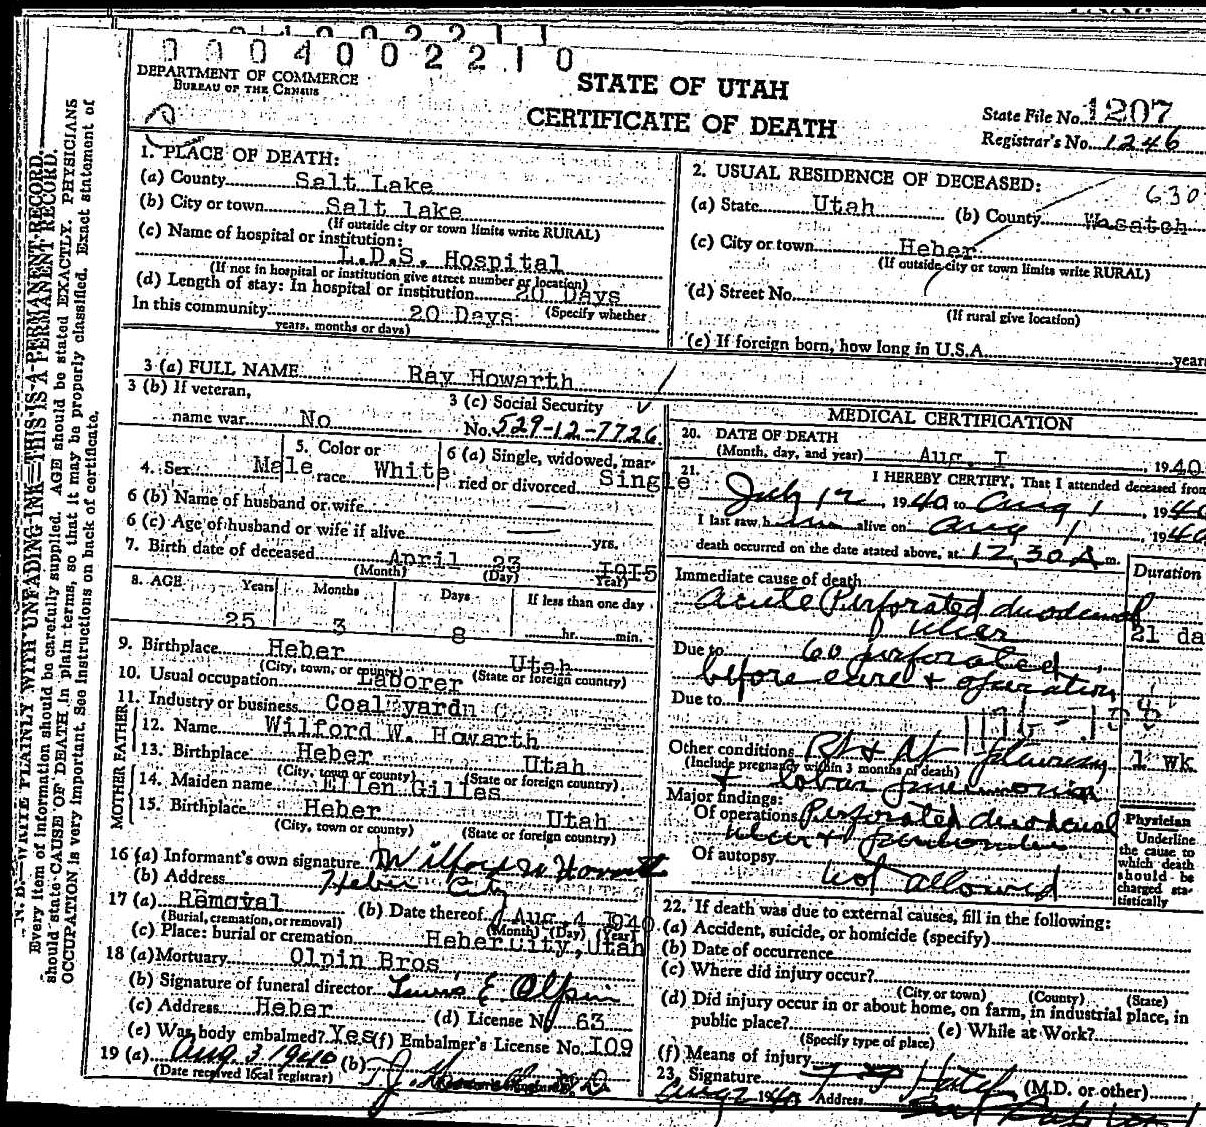 0 0 0 4 0 0 2 2 1 0
DEPARTMENT OF COMMERCE
BUREAU OF THE CENSUS
STATE OF UTAH
CERTIFICATE OF DEATH
State File No. 1207
Registrar's No. 1246
N. B.—WRITE PLAINLY WITH UNFADING INK—THIS IS A PERMANENT RECORD.
Every item of information should be carefully supplied. AGE should be stated EXACTLY. PHYSICIANS
should state CAUSE OF DEATH in plain terms, so that it may be properly classified. Exact statement of
OCCUPATION is very important. See instructions on back of certificate.
1. PLACE OF DEATH:
(a) County Salt Lake
(b) City or town Salt lake
(If outside city or town limits write RURAL)
(c) Name of hospital or institution:
L.D.S. Hospital
(If not in hospital or institution give street number or location)
(d) Length of stay: In hospital or institution 20 Days
(Specify whether
In this community 20 Days
years, months or days)
2. USUAL RESIDENCE OF DECEASED:
630
(a) State Utah (b) County Wasatch
(c) City or town Heber
(If outside city or town limits write RURAL)
(d) Street No.
(If rural give location)
(e) If foreign born, how long in U.S.A. years
3 (a) FULL NAME Ray Howarth
3 (b) If veteran,
name war No
3 (c) Social Security
No. 529-12-7726
4. Sex Male
5. Color or
race White
6 (a) Single, widowed, mar-
ried or divorced Single
6 (b) Name of husband or wife —
6 (c) Age of husband or wife if alive — yrs.
7. Birth date of deceased April 23 1915
(Month) (Day) (Year)
8. AGE Years Months Days If less than one day
25 3 8 hr. min.
9. Birthplace Heber Utah
(City, town, or county) (State or foreign country)
10. Usual occupation Laborer
11. Industry or business Coal yard
FATHER
12. Name Wilford W. Howarth
13. Birthplace Heber Utah
(City, town or county) (State or foreign country)
MOTHER
14. Maiden name Ellen Gilles
15. Birthplace Heber Utah
(City, town or county) (State or foreign country)
16 (a) Informant's own signature Wilford W Howarth
(b) Address Heber City
17 (a) Removal (b) Date thereof Aug. 4 1940
(Burial, cremation, or removal) (Month) (Day) (Year)
(c) Place: burial or cremation Heber City, Utah
18 (a) Mortuary Olpin Bros.
(b) Signature of funeral director E Olpin
(c) Address Heber (d) License No 63
(e) Was body embalmed? Yes (f) Embalmer's License No. 109
19 (a) Aug 3 1940 (b)
(Date received local registrar)
MEDICAL CERTIFICATION
20. DATE OF DEATH
(Month, day, and year) Aug. 1, 1940
21. I HEREBY CERTIFY, That I attended deceased from
July 12, 1940 to Aug 1, 1940
I last saw him alive on Aug 1, 1940
death occurred on the date stated above, at 12,30 A m.
Duration
Immediate cause of death
Acute Perforated duodenal
ulcer 21 da
Due to perforated
before care & operation
Due to
Other conditions
(Include pregnancy within 3 months of death) 1 wk
& lobar pneumonia
Major findings:
Of operations Perforated duodenal
ulcer &
Of autopsy not allowed
Physician
Underline
the cause to
which death
should be
charged sta-
tistically
22. If death was due to external causes, fill in the following:
(a) Accident, suicide, or homicide (specify)
(b) Date of occurrence
(c) Where did injury occur?
(City or town) (County) (State)
(d) Did injury occur in or about home, on farm, in industrial place, in
public place? (e) While at Work?
(Specify type of place)
(f) Means of injury
23. Signature Hatch (M.D. or other)
Aug 2 1940 Address